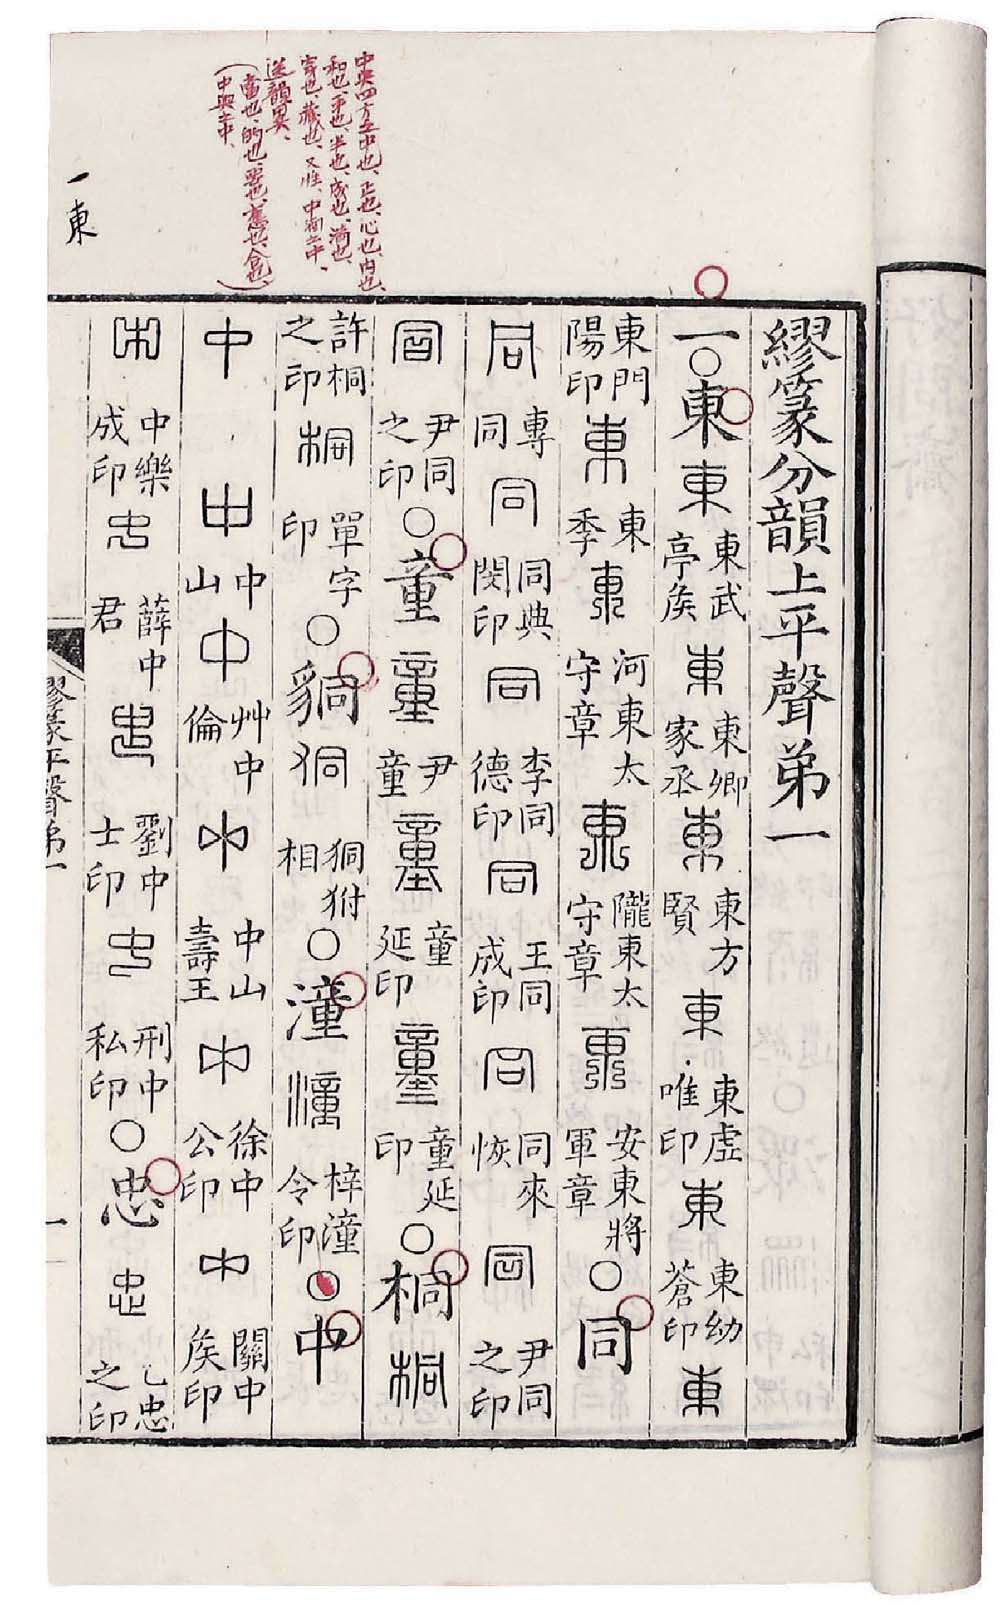 繆篆分韻上平聲弟一
一〇東東東武亭矦東東鄉家丞東東方賢東東虛唯印東東幼蒼印東
東門陽印東東季東河東太守章東隴東太守章東安東將軍章〇同
同專同同同典閔印同李同德印同王同成印同同來恢同尹同之印
同尹同之印〇童童尹童童童延印童童延印〇桐桐
許桐之印桐單字印〇狪狪狪狩相〇潼潼梓潼令印〇中
中中中山中艸中倫中中山壽王中徐中公印中關中矦印
中中樂成印中薛中君中劉中士印中刑中私印〇忠忠乙忠之印
繆篆平聲弟一
一
中央四方之中也、正也、心也、內也、
和也、平也、半也、成也、滿也、
送韻異、
中央之中、
一東